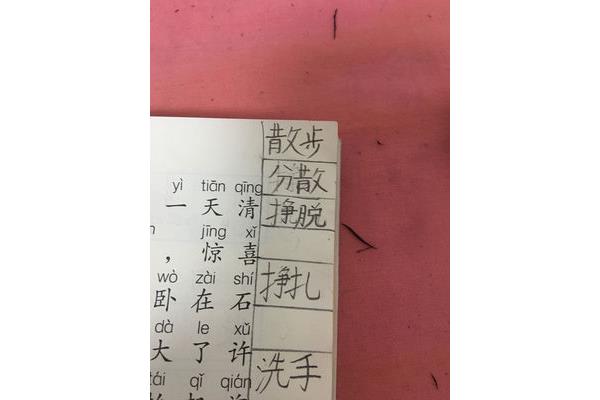 散步
分散
yì tiān qīng
一天清
挣脱
jīng xǐ
，惊喜
wò zài shí
卧在石
挣扎
dà le xǔ
大了许
洗手
qǐ qián